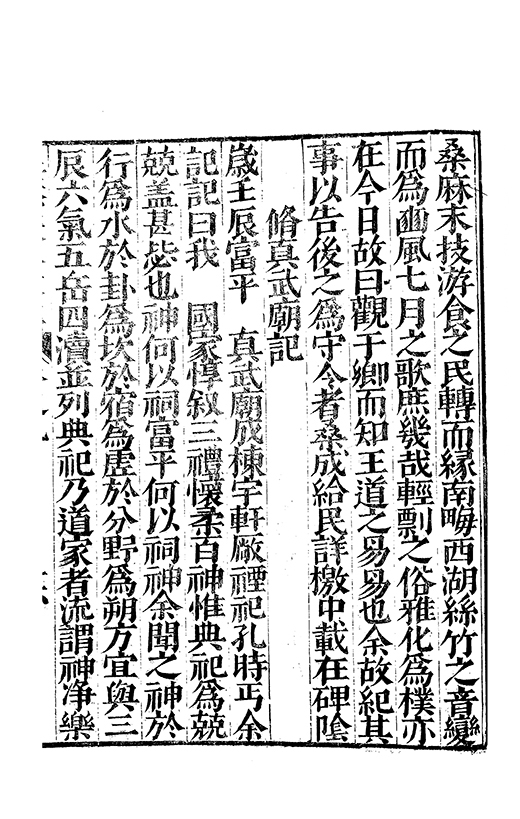 桑麻末技游食之民轉而緣南畮西湖絲竹之音變
而爲豳風七月之歌庶幾哉輕剽之俗雅化爲樸亦
在今日故曰觀于鄉而知王道之易易也余故紀其
事以告後之爲守令者桑成給民詳檄中載在碑陰
脩真武廟記
歲壬辰富平 真武廟成棟宇軒厰禋祀孔時丐余
記記曰我 國家惇敘三禮懷柔百神惟典祀爲兢
兢盖甚毖也神何以祠富平何以祠神余聞之神於
行爲水於卦爲坎於宿爲虛於分野爲朔方宜與三
辰六氣五岳四瀆並列典祀乃道家者流謂神净樂